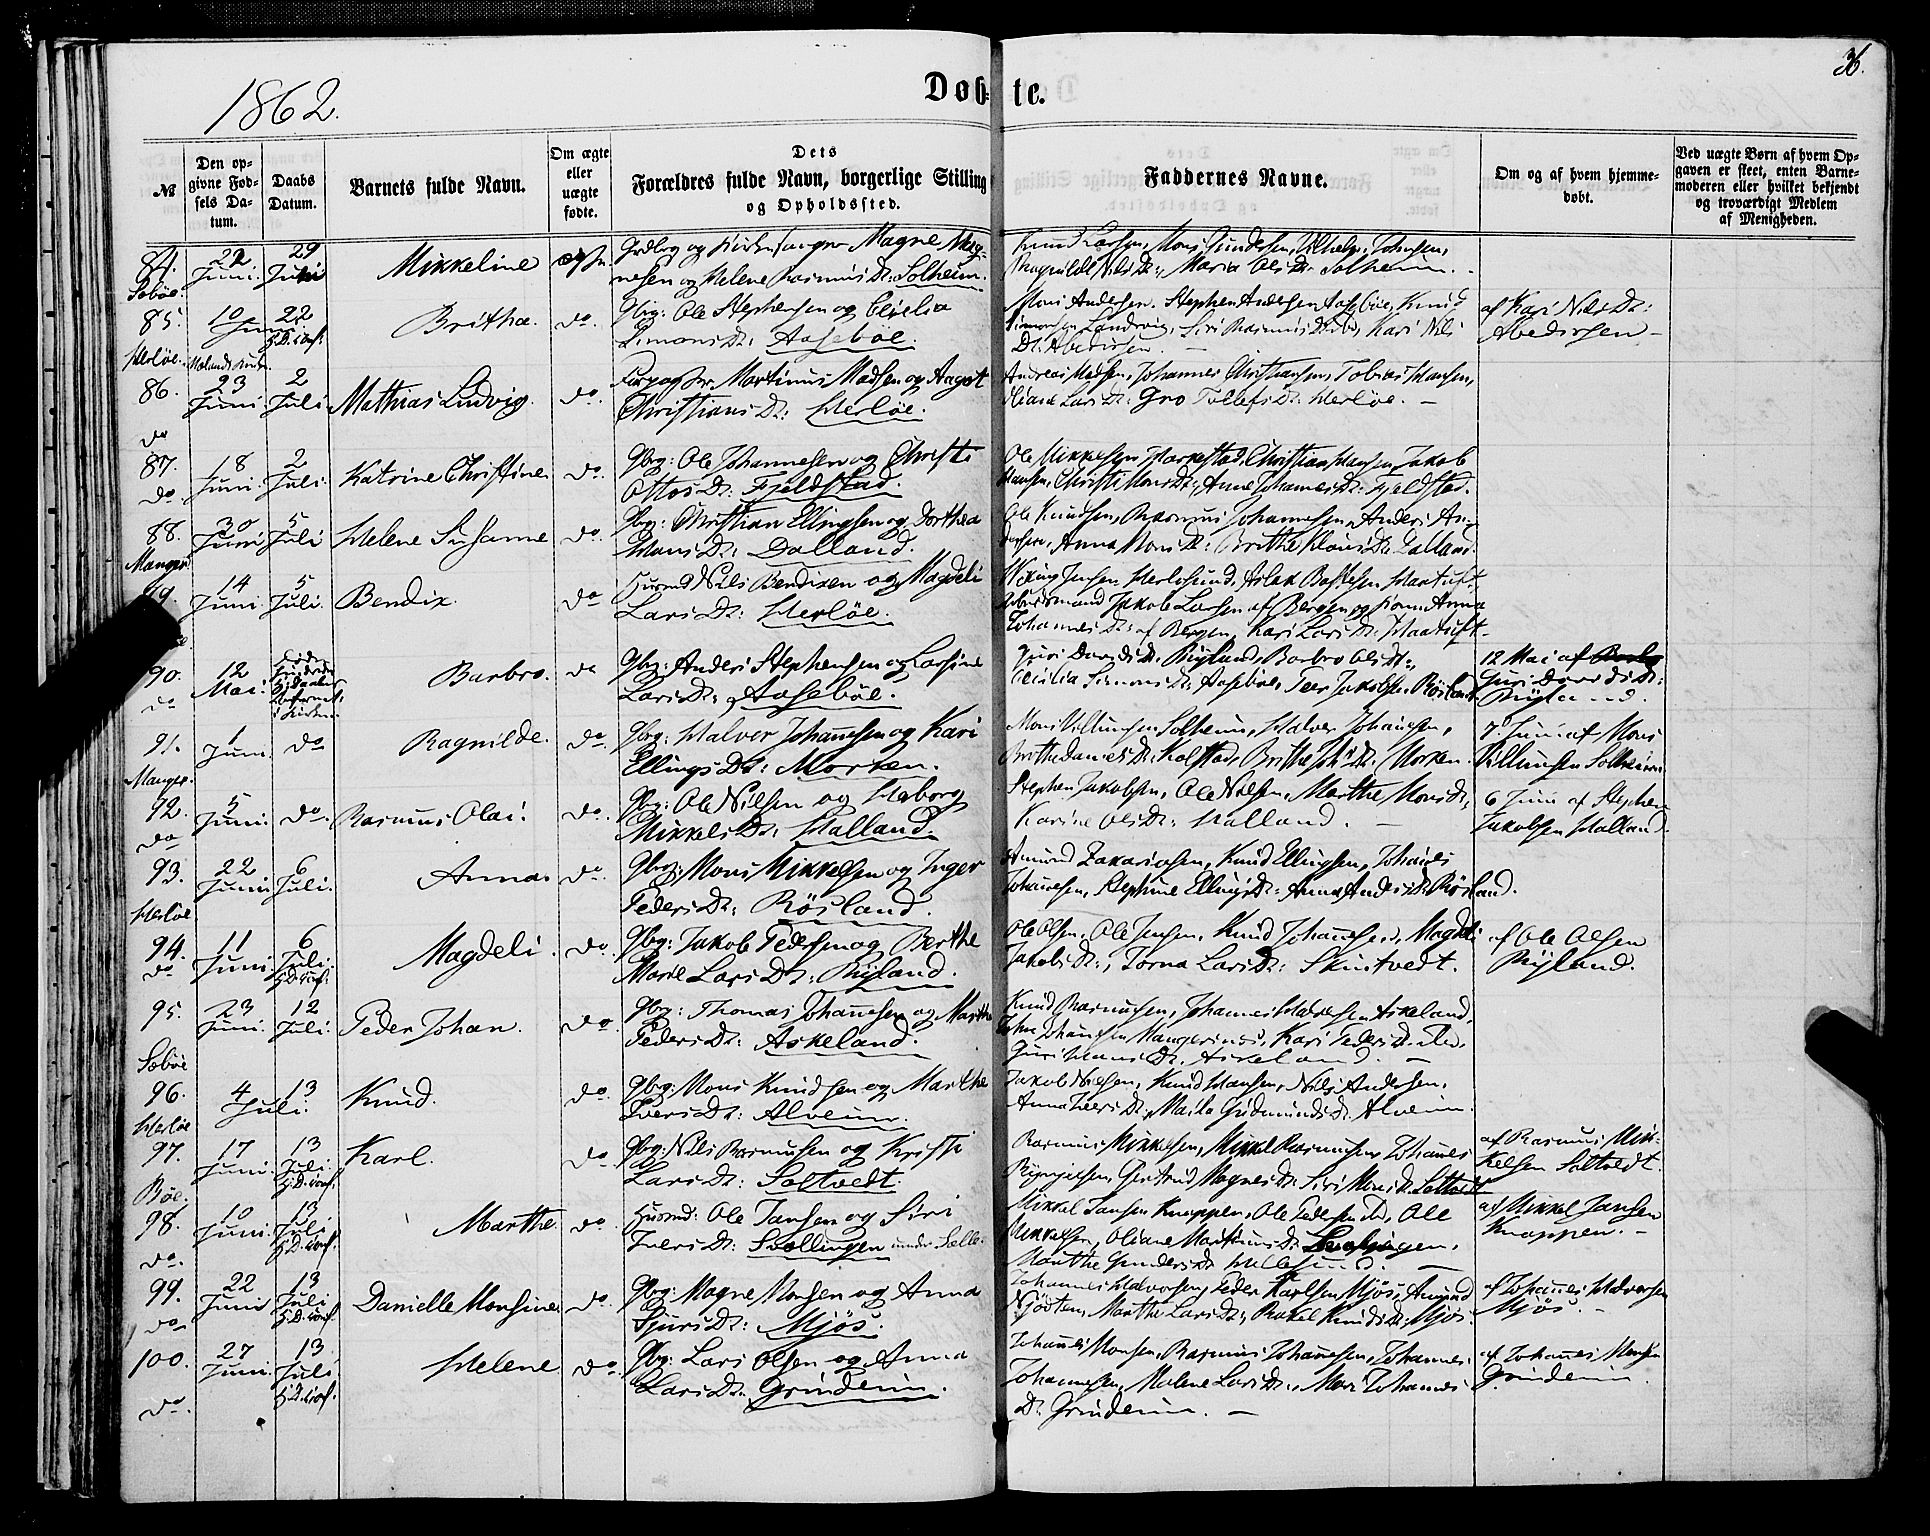 36.
1862.
Døbte.
№
Den opgivne Fødsels Datum.
Daabs Datum.
Barnets fulde Navn.
Om ægte eller uægte fødte.
Dets Forældres fulde Navn, borgerlige Stilling og Opholdssted.
Faddernes Navne.
Om og af hvem hjemmedøbt.
Ved uægte Børn af hvem Opgaven er skeet, enten Barnemoderen eller hvilket bekjendt og troværdigt Medlem af Menigheden.
84. Sæbøe. 22 Juni. 29 Mikkeline Magne Magnesen og Helene Rasmus Dt: Solheim.
Knud Larsen, Mons Gundersen, Vilhelm Johnsen,
Ragnilde Nils Dt:, Maria Ols Dt: Solheim.
85. Herløe. 10 Juni 22 Britha. do. Gbrg: Ole Stephensen og Cicilia
Simons Dt: Aasebøe.
Mons Andersen, Stephen Andersen Aasebøe, Knud
Simonsen Landsvig, Siri Rasmus Dt: ibd, Kari Nils
Dt: Abedissen.
af Kari Nils Dt:
Abedissen
86. do 23 Juni 2 Juli Mathias Ludvig. do. Martinus Madsen og Aagot
Christians Dt: Herløe.
Andreas Madsen, Johannes Christiansen, Tobias Hansen,
Oliane Lars Dt: Gro Tollefs Dt: Herløe.
87. do. 18 Juni. 2 Juli. Katrine Christine do. Gbrg: Ole Johannesen og Christi
Ottos Dt: Fjeldstad.
Ole Mikkelsen Markestad, Christian Hansen, Jakob
Hansen, Christi Mons Dt:, Anne Johannes Dt: Fjeldstad.
88. Manger 30 Juni 5 Juli Helene Susanne do. Gbrg: Christian Ellingsen og Dorthea
Hans Dt: Dalland.
Ole Knudsen, Rasmus Johannesen, Anders An-
dersen, Anna Mons Dt: Brithe Klaus Dt: Dalland.
14 Juni. 5 Juli. Bendix. do Husmd Nils Bendixen og Magdeli
Lars Dt: Herløe.
Jensen Herløsund, Aslak Bastesen Haatuft,
Jakob Larsen af Bergen og Kone Anna
Johannes Dt: af Bergen, Kari Lars Dt: Haatuft
90. do 12 Mai. Barbro. do Gbrg: Anders Stephensen og Larsine
Lars Dt: Aasebøe.
Guri Davids Dt. Ryland, Barbro Ols Dt:,
Cecilia Simons Dt: Aasebøe, Peer Jakobsen Røsland
12 Mai af
Guri Davids Dt:
Rylland.
91. Manger. 1 Juni. do Ragnilde. do. Gbrg: Halvor Johannesen og Kari
Ellings Dt: Morken.
Mons Villumsen Solheim, Halvor Johannesen,
Brithe Daniels Dt: Kolstad, Brithe Dt: Morken.
7 Juni af Mons
Villumsen Solheim
92. do 5 Juni. do. Rasmus Olai. do. Gbrg: Ole Nilsen og Heborg
Mikkels Dt: Halland.
Stephen Jakobsen, Ole Nilsen, Marthe Mons Dt:,
Karine Ols Dt: Halland.
6 Juni af Stephen
Jakobsen Halland.
93. Herløe 22 Juni 6 Juli. Anna. do. Gbrg: Mons Mikkelsen og Inger
Peders Dt: Røsland.
Amund Zakariasen, Knud Ellingsen, Johannes
Johannesen, Stephine Ellings Dt: Anna Anders Dt: Røsland.
94. do 11 Juni 6 Juli. Magdeli. do. Gbrg: Jakob Pedersen og Berthe
Marie Lars Dt: Ryland.
Ole Olsen, Ole Jensen, Knud Johannesen, Magdeli
Jakobs Dt:, Torna Lars Dt: Skintvedt.
af Ole Olsen
Ryland.
95. Sæbøe 23 Juni. 12 Juli. Peder Johan. do. Gbrg: Thomas Johannesen og Marthe
Peders Dt: Askeland.
Knud Rasmussen, Johannes Halvorsen Askeland,
Johannesen Mangersnæs, Kari Peders Dt. ibd,
Guri Hans Dt. Askeland.
96. Herløe 4 13 Juli. Knud. do. Gbrg: Mons Knudsen og Marthe
Ivers Dt: Alveim.
Jakob Nielsen, Knud Hansen, Nils Andersen,
Anna Ivers Dt: Marta Gudmunds Dt. Alveim.
97. Bøe. 17 Juni. 13 Juli. Karl. do Gbrg: Nils Rasmussen og Kristi
Lars Dt: Soltvedt.
Rasmus Mikkelsen, Mikkel Rasmussen, Johannes
Brynjelsen, Gertrud Magnes Dt: Siri Mons Dt. Soltvedt
af Rasmus Mik-
kelsen Soltvedt.
98. do. 10 Juni 13 Juli Marthe. do. Husmd: Ole Jansen og Siri
Ivers Dt: Sællingen under Selle.
Mikkel Jansen Knappen, Ole Pedersen ibd, Ole
Mikkelsen, Oliane Martinus Dt:
Marthe Gunders Dt: Hellesund.
af Mikkel Jansen
Knappen.
99. do 22 Juni 13 Juli Danielle Monsine do. Gbrg: Magne Monsen og Anna
Sjurs Dt: Mjøs.
Johannes Halvorsen, Peder Karlsen Mjøs, Amund
Njøsten, Marthe Lars Dt:, Rakel Knuds Dt: Mjøs.
af Johannes Halvorsen
Mjøs.
100. do. 27 Juni. 13 Juli Helene do. Gbrg: Lars Olsen og Anna
Lars Dt: Grindeim.
Johannes Monsen, Rasmus Johannesen, Johannes
Johannesen, Malene Lars Dt:, Mari Johannes
Dt: Grindeim.
af Johannes Monsen
Grindeim.